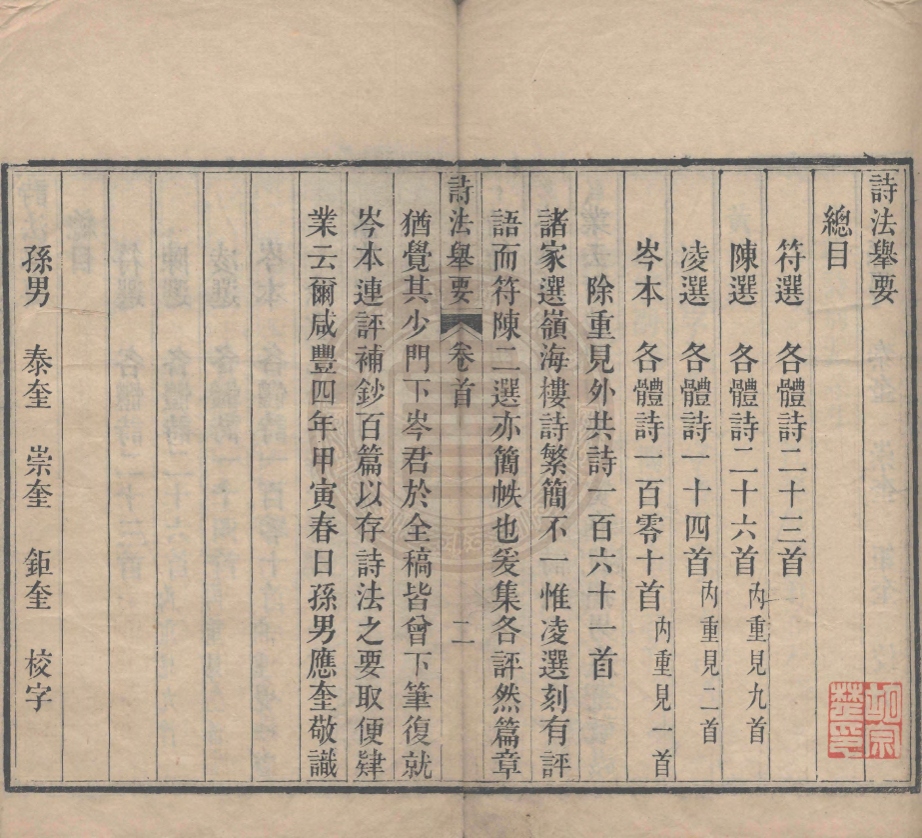 詩法舉要
總目
符選　各體詩二十三首
陳選　各體詩二十六首內重見九首
凌選　各體詩一十四首內重見二首
岑本　各體詩一百零十首內重見一首
除重見外共詩一百六十一首
諸家選嶺海樓詩繁簡不一惟凌選刻有評
語而符陳二選亦簡帙也爰集各評然篇章
詩法舉要　卷首　二
猶覺其少門下岑君於全稿皆曾下筆復就
岑本連評補鈔百篇以存詩法之要取便肄
業云爾咸豐四年甲寅春日孫男應奎敬識
孫男　泰奎　崇奎　鉅奎　校字